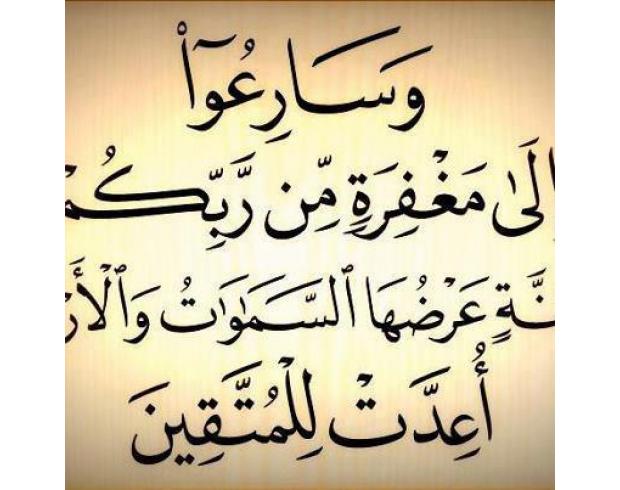 وَسَارِعُوٓا۟
إِلَىٰ مَغْفِرَةٍ مِّن رَّبِّكُمْ
عَرْضُهَا ٱلسَّمَـٰوَٰتُ
أُعِدَّتْ لِلْمُتَّقِينَ